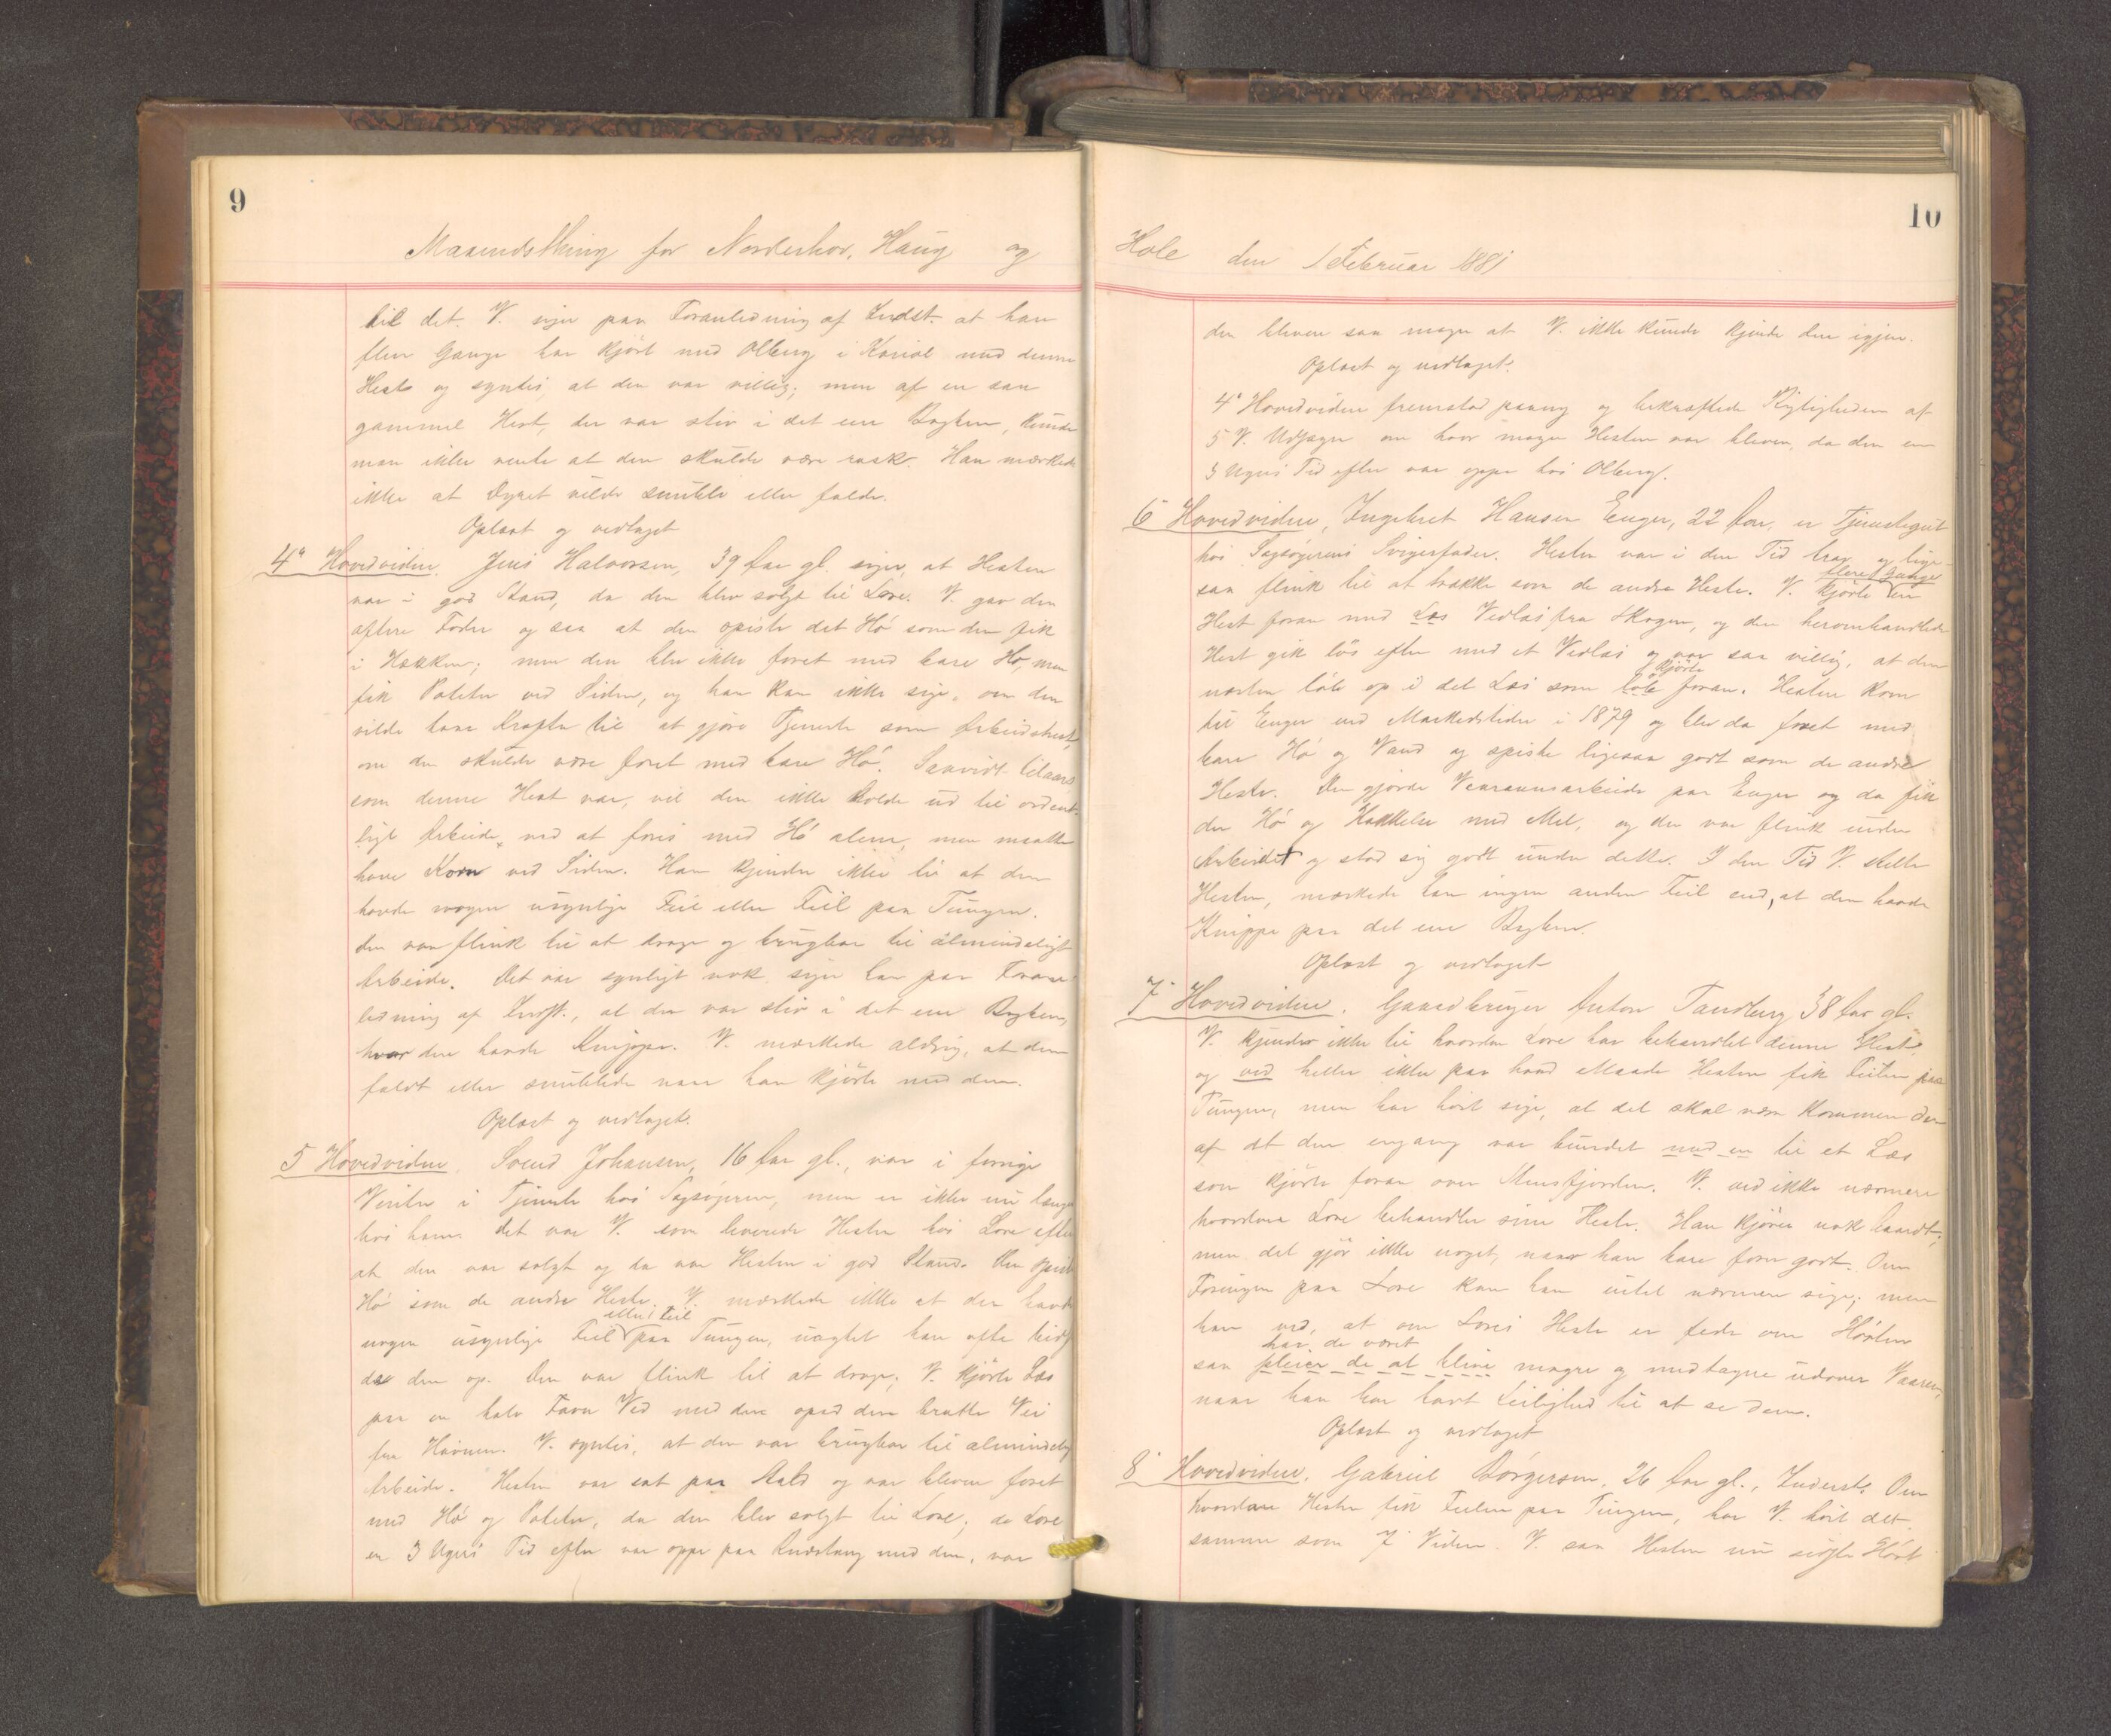 9
Maanedsthing for Norderhov, Haug og
til det. V. siger paa Foranledning af Indst. at han
flere Gange har kjørt med Olberg i Kariol med denne
Hest og syntes, at den var villig; men af en saa
gammel Hest, der var stiv i det ene Bagben, kunde
man ikke vente at den skulde være rask. Han mærkede
ikke at Dyret vilde snuble eller falde.
Oplæst og vedtaget
4de Hovedvidne. Jens Halvorsen, 39 Aar gl. siger, at Hesten
var i god Stand, da den blev solgt til Lore. V. gav den
oftere Foder og saa at den spiste det Hø som den fik
i Hækken; men den blev ikke foret med bare Hø, men
fik Poteter ved Siden, og han kan ikke sige, om den
vilde have Kræfter til at gjøre Tjeneste som Arbeidshest,
om den skulde være foret med bare Hø. Saavidt tilaars
som denne Hest var, vil den ikke holde ud til ordent-
ligt Arbeide, ved at fores med Hø alene, men maatte
have Korn ved Siden. Han kjender ikke til at den
havde nogen usynlige Feil eller Feil paa Tungen.
den var flink til at drage og brugbar til almindeligt
Arbeide. Det var synligt nok siger han paa Foran-
ledning af Indst., at den var stiv i det ene Bagben,
hvor den havde Knipper. V. mærkede aldrig, at den
faldt eller snublede naar han kjørte med den.
Oplæst og vedtaget.
5 Hovedvidne. Svend Johansen, 16 Aar gl., var i forrige
Vinter i Tjeneste hos Sagsøgeren, men er ikke nu længer
hos ham. det var V. som leverede Hesten hos Lore efter
at den var solgt og da var Hesten i god Stand. Den spiste
Hø som de andre Heste. V. mærkede ikke at den havde
nogen usynlige Feil eller Feil paa Tungen, uagtet han ofte
den op. Den var flink til at drage; V. kjørte Læs
paa en halv Favn Ved med den opad den bratte Vei
fra Havnen. V. syntes, at den var brugbar til almindelig
Arbeide. Hesten var sat paa Stald og var bleven foret
med Hø og Poteter, da den blev solgt til Lore; da Lore
en 3 Ugers Tid efter var oppe paa med den, var
10
Hole den 1 Februar 1881
den bleven saa mager at V. ikke kunde kjende den igjen.
Oplæst og vedtaget.
4de Hovedvidne fremstod paany og bekræftede Rigtigheden af
5 V. Udsagn om hvor mager Hesten var bleven, da den en
3 Ugers Tid efter var oppe hos Olberg.
6 Hovedvidne, Ingebret Hansen Enger, 22 Aar, er Tjenestegut
hos Sagsøgerens Svigerfader. Hesten var i den Tid brav og lige-
saa flink til at trække som de andre Heste. V. kjørte flere Gange en
Hest foran med Læs Vedlæs fra Skogen, og den heromhandlede
Hest gik løs efter med et Vedlæs og var saa villig, at den
næsten løb op i det Læs som løb kjørte foran. Hesten kom
til Enger ved Markedstiden i 1879 og blev da foret med
bare Hø og Vand og spiste ligesaa godt som de andre
Heste. Den gjorde Vaaraansarbeide paa Enger og da fik
den Hø og Hakkelse med Mel, og den var flink under
Arbeidet og stod sig godt under dette. I den Tid V. stelte
Hesten, mærkede han ingen anden Feil end, at den havde
Knippe paa det ene Bagben.
Oplæst og vedtaget
7 Hovedvidne. Gaardbruger Anton Tandberg 38 Aar gl.
V. kjender ikke til hvordan Lore har behandlet denne Hest,
og ved heller ikke paa hvad Maade Hesten fik Feilen paa
Tungen, men har hørt sige, at det skal være kommen der-
af at den engang var bundet med en til et Læs
som kjørte foran over Stensfjorden. V. ved ikke nærmere
hvordan Lore behandler sine Heste. Han kjører nok haardt;
men det gjør ikke noget, naar han bare forer godt. Om
Foringen paa Lore kan han intet nærmere sige; men
han ved, at om Lores Heste er fede om Høsten
saa pleier de at blive har de været magre og medtagne udover Vaaren,
naar han har havt Leilighed til at se dem.
Oplæst og vedtaget
8 Hovedvidne. Gabriel Børgersen, 26 Aar gl., Inderst. Om
hvordan Hesten fik Feilen paa Tungen, har V. hørt det
samme som 7 Vidne. V. saa Hesten nu sidste Høst